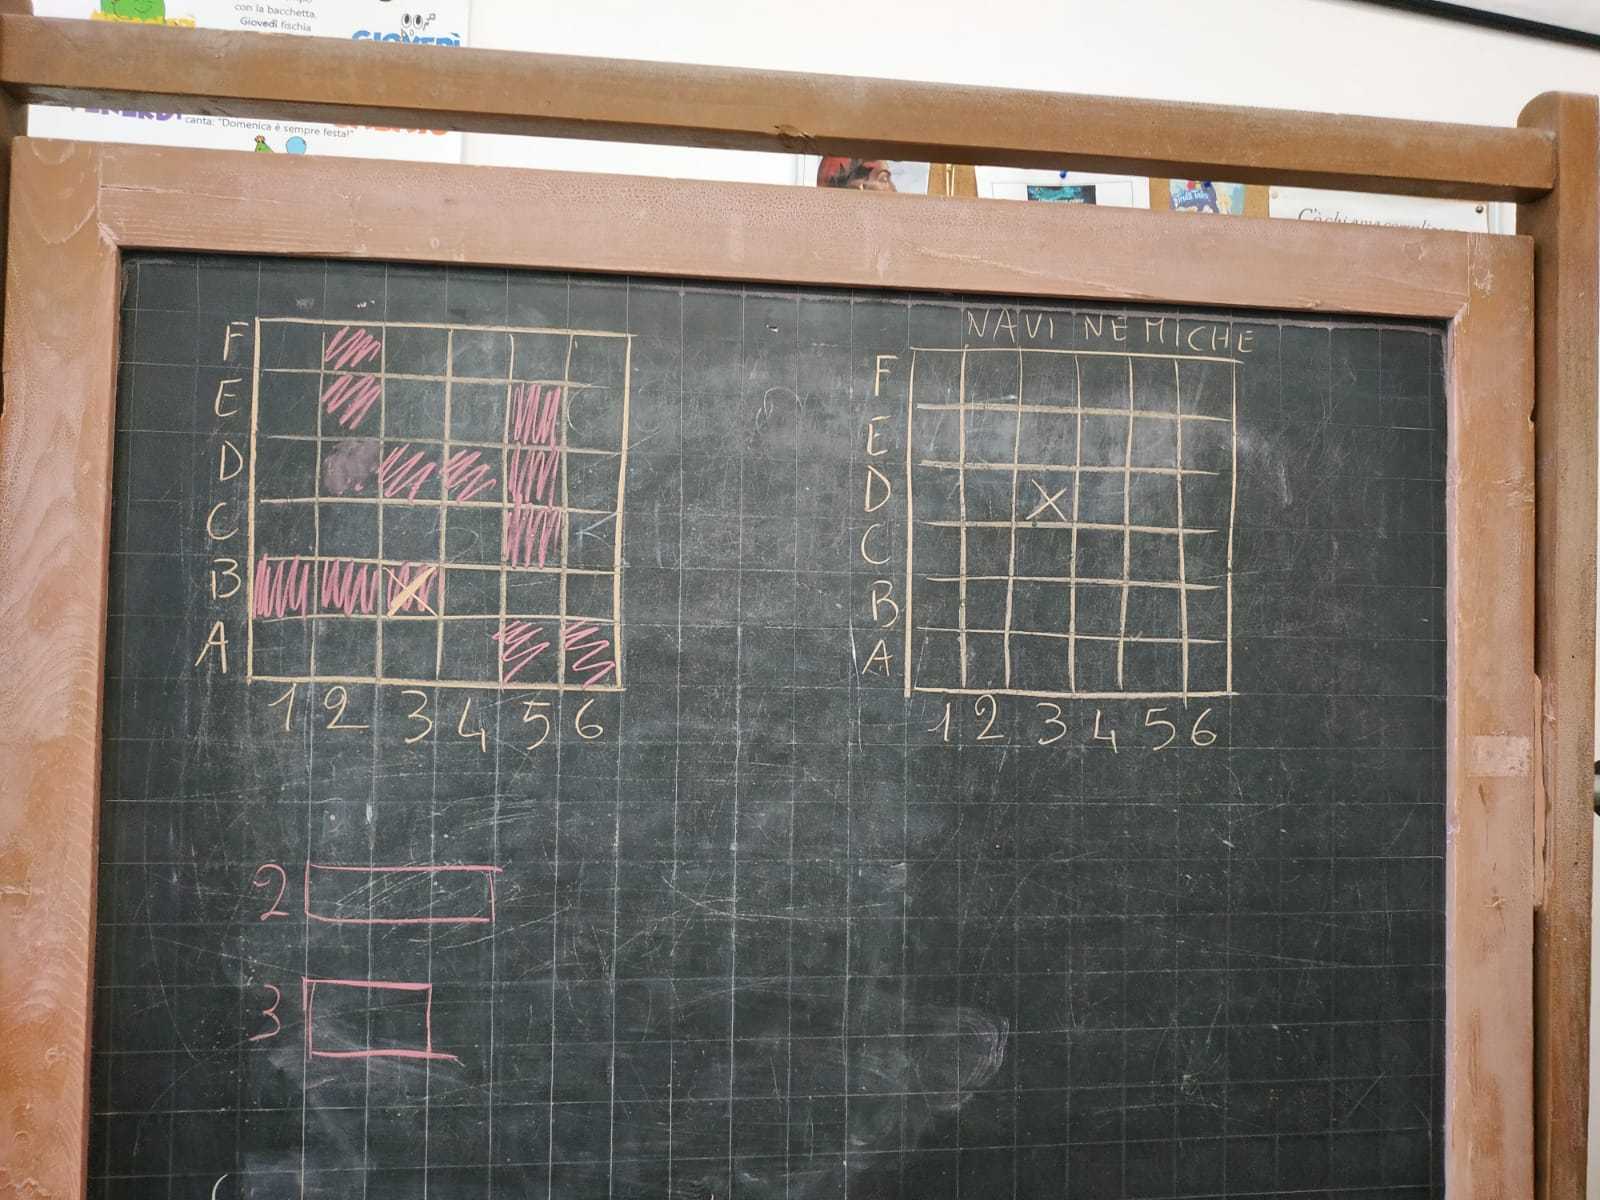 con la bacchetta,
Giovedì fischia
GIOVEDÌ
VENERDÌ
canta: "Domenica è sempre festa!"
NAVI NEMICHE
F
E
D
C
B
A
1 2 3 4 5 6
F
E
D
C
B
A
1 2 3 4 5 6
2
3